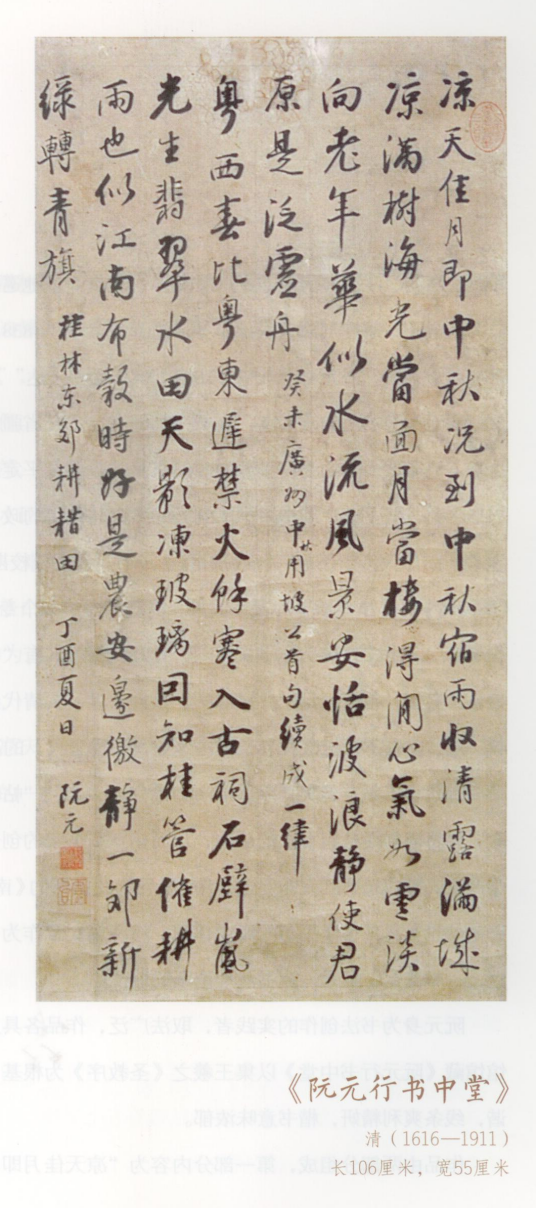 凉天佳月即中秋况到中秋宿雨收清露满城
凉满樹海光當面月當楼得閒心氣如雲淡
向老年華似水流風景安恬波浪静使君
原是泛虛舟 癸未廣州中秋用坡公首句續成一律
粤西春比粤東遲禁火餘寒入古祠石壁嵐
光生翡翠水田天影凍玻璃因知桂管催耕
雨也似江南布穀時好是農安邊徼静一郊新
綠轉青旗 桂林东郊耕耤田 丁酉夏日 阮元
《阮元行书中堂》
清（1616—1911）
长106厘米，宽55厘米